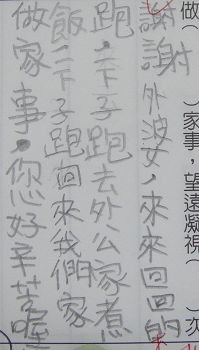 做(　　)家事，望遠凝視(　　)次
謝謝外波女，來來回回的
跑，一下子跑去外公家煮
飯，一下子跑回來我們家
做家事。你好辛苦喔